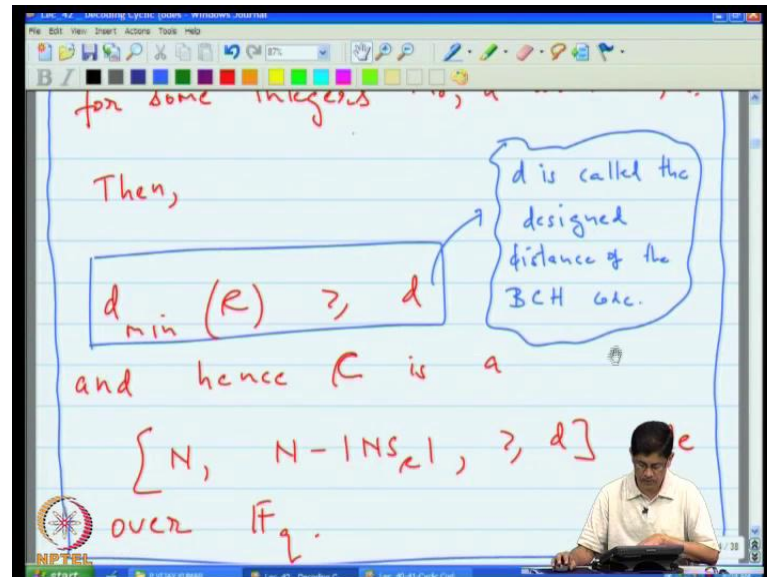 Lec_42_Decoding Cyclic Codes - Windows Journal
File Edit View Insert Actions Tools Help
87%
B I
for some integers
Then,
d is called the
designed
distance of the
BCH code.
d min (C) ≥ d
and hence C is a
[N, N - |NS_C|, ≥ d]
over F_q.
NPTEL
start